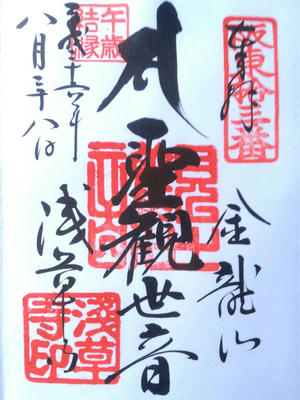 坂東拾三番
奉拝
金龍山
聖觀世音
浅草寺
淺草寺印
午歳結縁
平成二十六年
八月二十八日